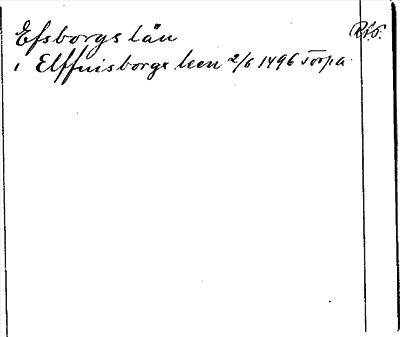 Efsborgs län
i Elffuisborgx leen 2/6 1496 Torpa.